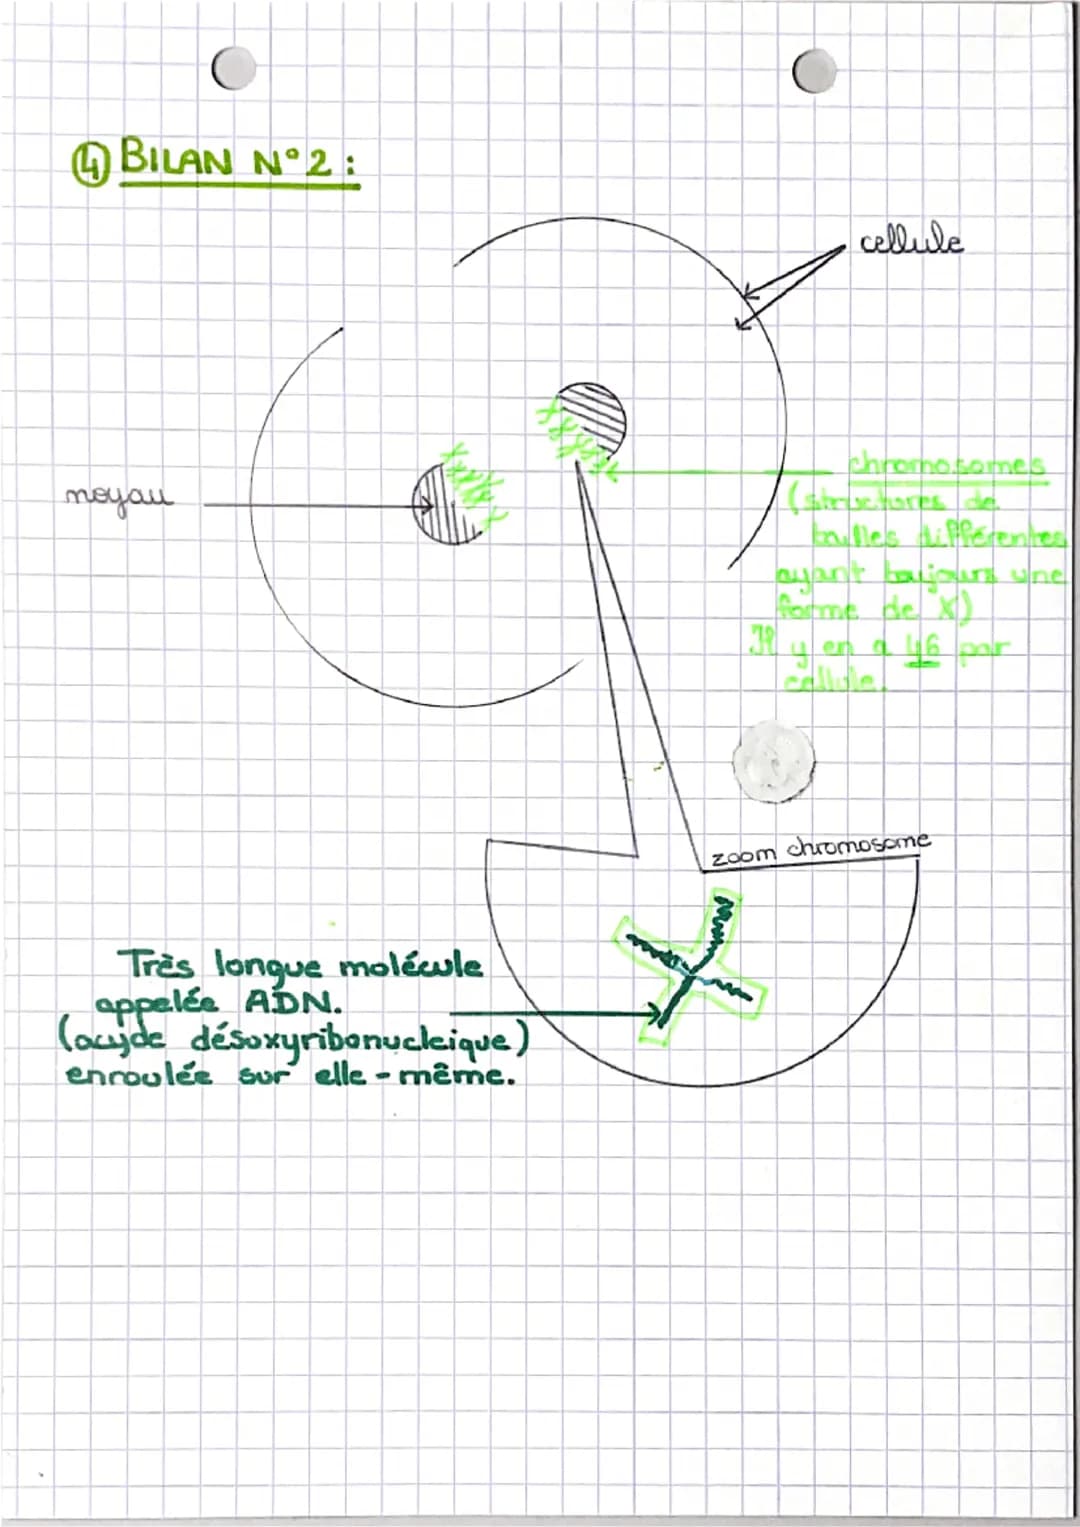 ④ BILAN N°2 :
cellule
noyau
chromosomes
(structures de
tailles différentes
ayant toujours une
forme de X)
Il y en a 46 par
cellule.
zoom chromosome
Très longue molécule
appelée ADN.
(acyde désoxyribonucleique)
enroulée sur elle-même.